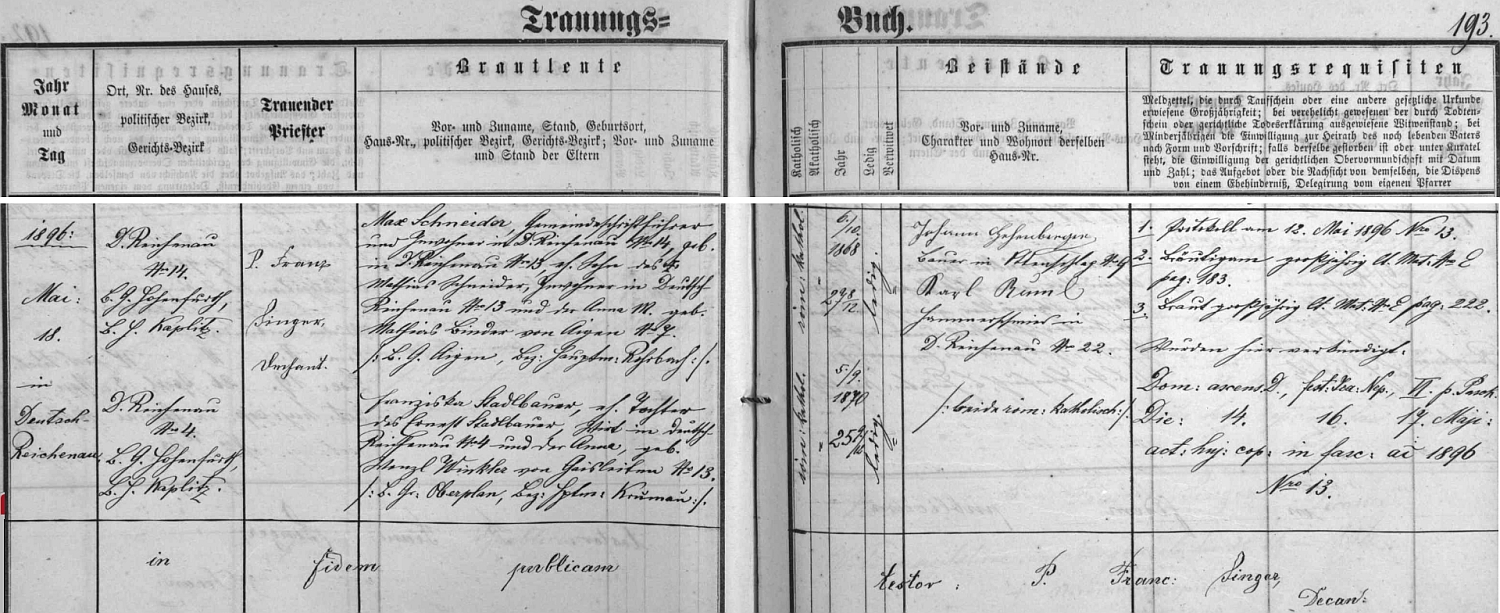 Trauungs=
Buch.
193.
Jahr
Monat
und
Tag
Ort, Nr. des Hauses,
politischer Bezirk,
Gerichts-Bezirk
Trauender
Priester
Brautleute
Vor- und Zuname, Stand, Geburtsort,
Haus-Nr., politischer Bezirk, Gerichts-Bezirk; Vor- und Zuname
und Stand der Eltern
Katholisch
Akatholisch
Jahr
Ledig
Verwitwet
Beistände
Vor- und Zuname,
Charakter und Wohnort derselben
Haus-Nr.
Trauungsrequisiten
Meldzettel, die durch Taufschein oder eine andere gesetzliche Urkunde
erwiesene Großjährigkeit; bei verehelicht gewesenen der durch Todten-
schein oder gerichtliche Todeserklärung ausgewiesene Witwenstand; bei
Minderjährigen die Einwilligung zur Heirath des noch lebenden Vaters
nach Form und Vorschrift; falls derselbe gestorben ist oder unter Kuratel
steht, die Einwilligung der gerichtlichen Obervormundschaft mit Datum
und Zahl; das Aufgebot oder die Nachsicht von demselben, die Dispens
von einem Ehehinderniß, Delegirung vom eigenen Pfarrer
1896:
Mai:
18.
in
Deutsch-
Reichenau
D. Reichenau
No 14.
B. G. Hohenfurth,
B. H. Kaplitz.
D. Reichenau
No 4.
B. G. Hohenfurth,
B. H. Kaplitz.
P. Franz
Singer,
Dechant.
Max Schneider, Gemeindeschriftführer
und Inwohner in D. Reichenau No 14, geb.
in D. Reichenau No 13 eh. Sohn des
Mathias Schneider, Inwohner in Deutsch
Reichenau No 13 und der Anna M. geb.
Mathias Binder von Aigen No 7.
/: B. G. Aigen, Bez: Hauptm: Rohrbach :/.
Franziska Stadlbauer, eh. Tochter
des Ernest Stadlbauer, Wirt in Deutsch
Reichenau No 4 und der Anna, geb.
Wenzl Winkler von Geisleiten No 13.
/: B. Gr: Oberplan, Bez: Hptm: Krumau :/.
röm: kathol.
6./10.
1868
ledig
röm: kathol.
5/9.
1870
ledig
Johann
Bauer in No 9
Karl
Hammerschmied in
D. Reichenau No 22.
/: beide röm: katholisch :/
1. Protokoll am 12. Mai 1896 Nro 13.
2. Bräutigam großjährig lt. Mat: No E
pag: 183.
3. Braut großjährig lt. Mat: No E pag: 222.
Wurden hier verkündigt:
Dom: ascens. D., fest: Joa: Nep., VI p. Pasch.
Die: 14. 16. 17. Maji:
act: huj: cop: in fasc: ai 1896
Nro 13.
in fidem publicam
testor: P. Franc: Singer,
Decan: